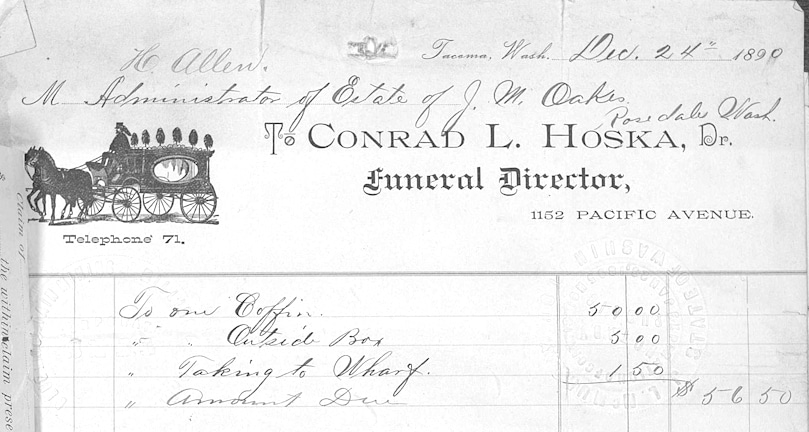 H. Allen.
Tacoma, Wash. Dec. 24" 1890
M Administrator of Estate of J. M. Oakes.
Rosedale Wash.
To CONRAD L. HOSKA, Dr.
Funeral Director,
1152 PACIFIC AVENUE.
Telephone 71.
To one Coffin. 50 00
" " Outside Box 5 00
" Taking to Wharf. 1 50
" Amount Due $ 56 50
claim of
the within claim prese